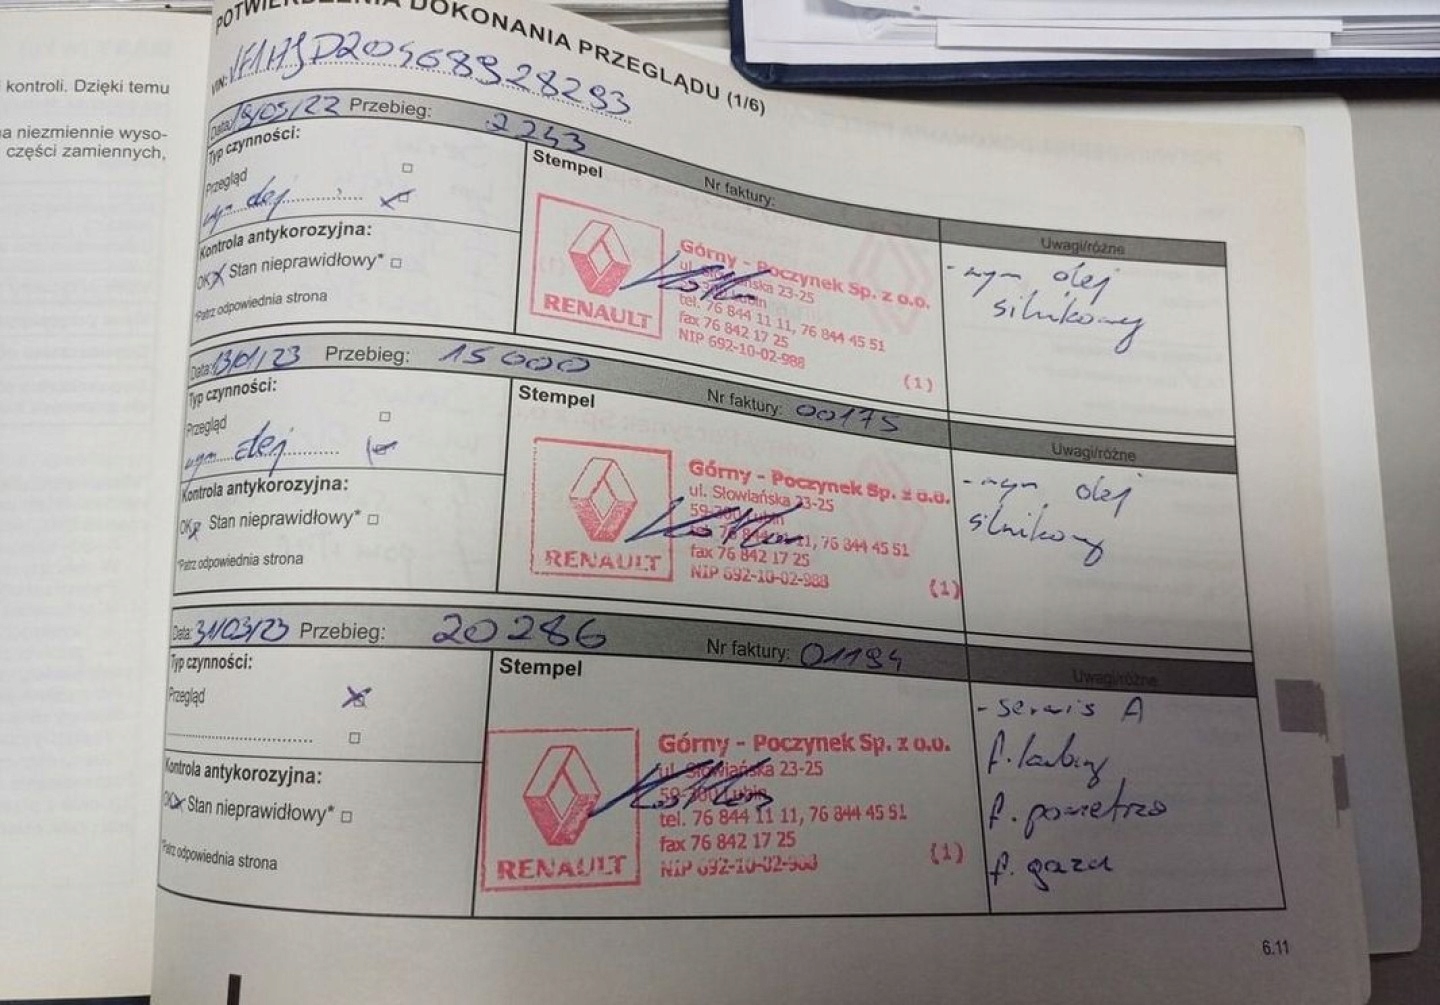 kontroli. Dzięki temu
na niezmiennie wyso-
części zamiennych,
POTWIERDZENIA DOKONANIA PRZEGLĄDU (1/6)
VIN: VF1HJD20468928293
Data: 19/05/22 Przebieg: 2253
Nr faktury:
Typ czynności:
Przegląd
wym olej
Kontrola antykorozyjna:
OK Stan nieprawidłowy*
*Patrz odpowiednia strona
Stempel
RENAULT
Górny - Poczynek Sp. z o.o.
ul. Słowiańska 23-25
59-300 Lubin
tel. 76 844 11 11, 76 844 45 51
fax 76 842 17 25
NIP 692-10-02-988
(1)
Uwagi/różne
- wym olej
silnikowy
Data: 13/01/23 Przebieg: 15000
Nr faktury: 00175
Typ czynności:
Przegląd
wym olej
Kontrola antykorozyjna:
OK Stan nieprawidłowy*
*Patrz odpowiednia strona
Stempel
RENAULT
Górny - Poczynek Sp. z o.o.
ul. Słowiańska 23-25
59-300 Lubin
tel. 76 844 11 11, 76 844 45 51
fax 76 842 17 25
NIP 692-10-02-988
(1)
Uwagi/różne
- wym olej
silnikowy
Data: 31/03/23 Przebieg: 20286
Nr faktury: 01194
Typ czynności:
Przegląd
Kontrola antykorozyjna:
OK Stan nieprawidłowy*
*Patrz odpowiednia strona
Stempel
RENAULT
Górny - Poczynek Sp. z o.o.
ul. Słowiańska 23-25
59-300 Lubin
tel. 76 844 11 11, 76 844 45 51
fax 76 842 17 25
NIP 692-10-02-988
(1)
Uwagi/różne
- serwis A
f. kabiny
f. powietrza
f. gazu
6.11